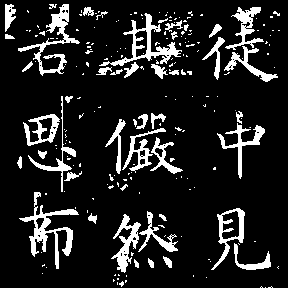 徒中見
其儼然
若思而